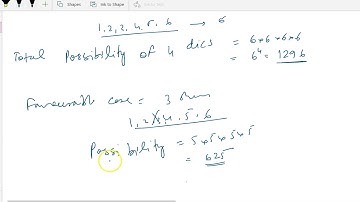 Shapes
Ink to Shape
1,2,2,4,5,6 → 6
Total Possibility of 4 dics = 6×6×6×6
= 6⁴ = 1296
Favourable case = 3
1,2,4.5.6
Possibility = 5×5×5×5
= 625